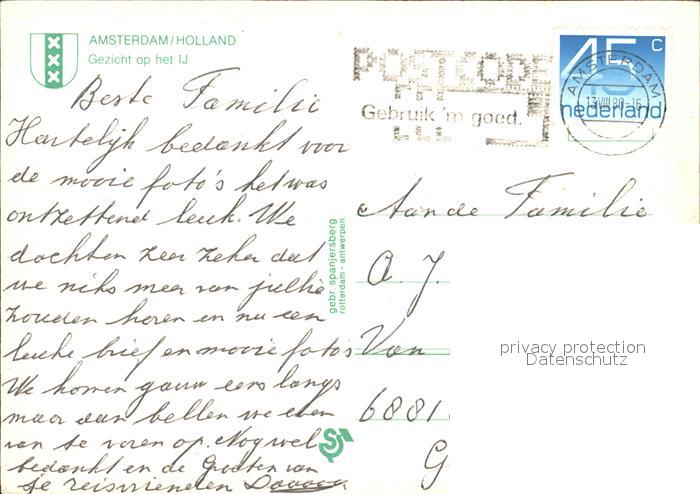 AMSTERDAM/HOLLAND
Gezicht op het IJ
POSTCODE
Gebruik 'm goed.
AMSTERDAM
13.VIII.80-16
45 c
nederland
Beste Familie
Hartelijk bedankt voor
de mooie foto's het was
ontzettend leuk. We
dachten zeer zeker dat
we niks meer van jullie
zouden horen en nu een
leuke brief en mooie foto's
We komen gauw eens langs
maar dan bellen we even
van te voren op. Nog wel
bedankt en de Groeten van
je reisvrienden
gebr. spanjersberg
rotterdam - antwerpen
Aan de Familie
A. J.
Van
6881
G
privacy protection
Datenschutz